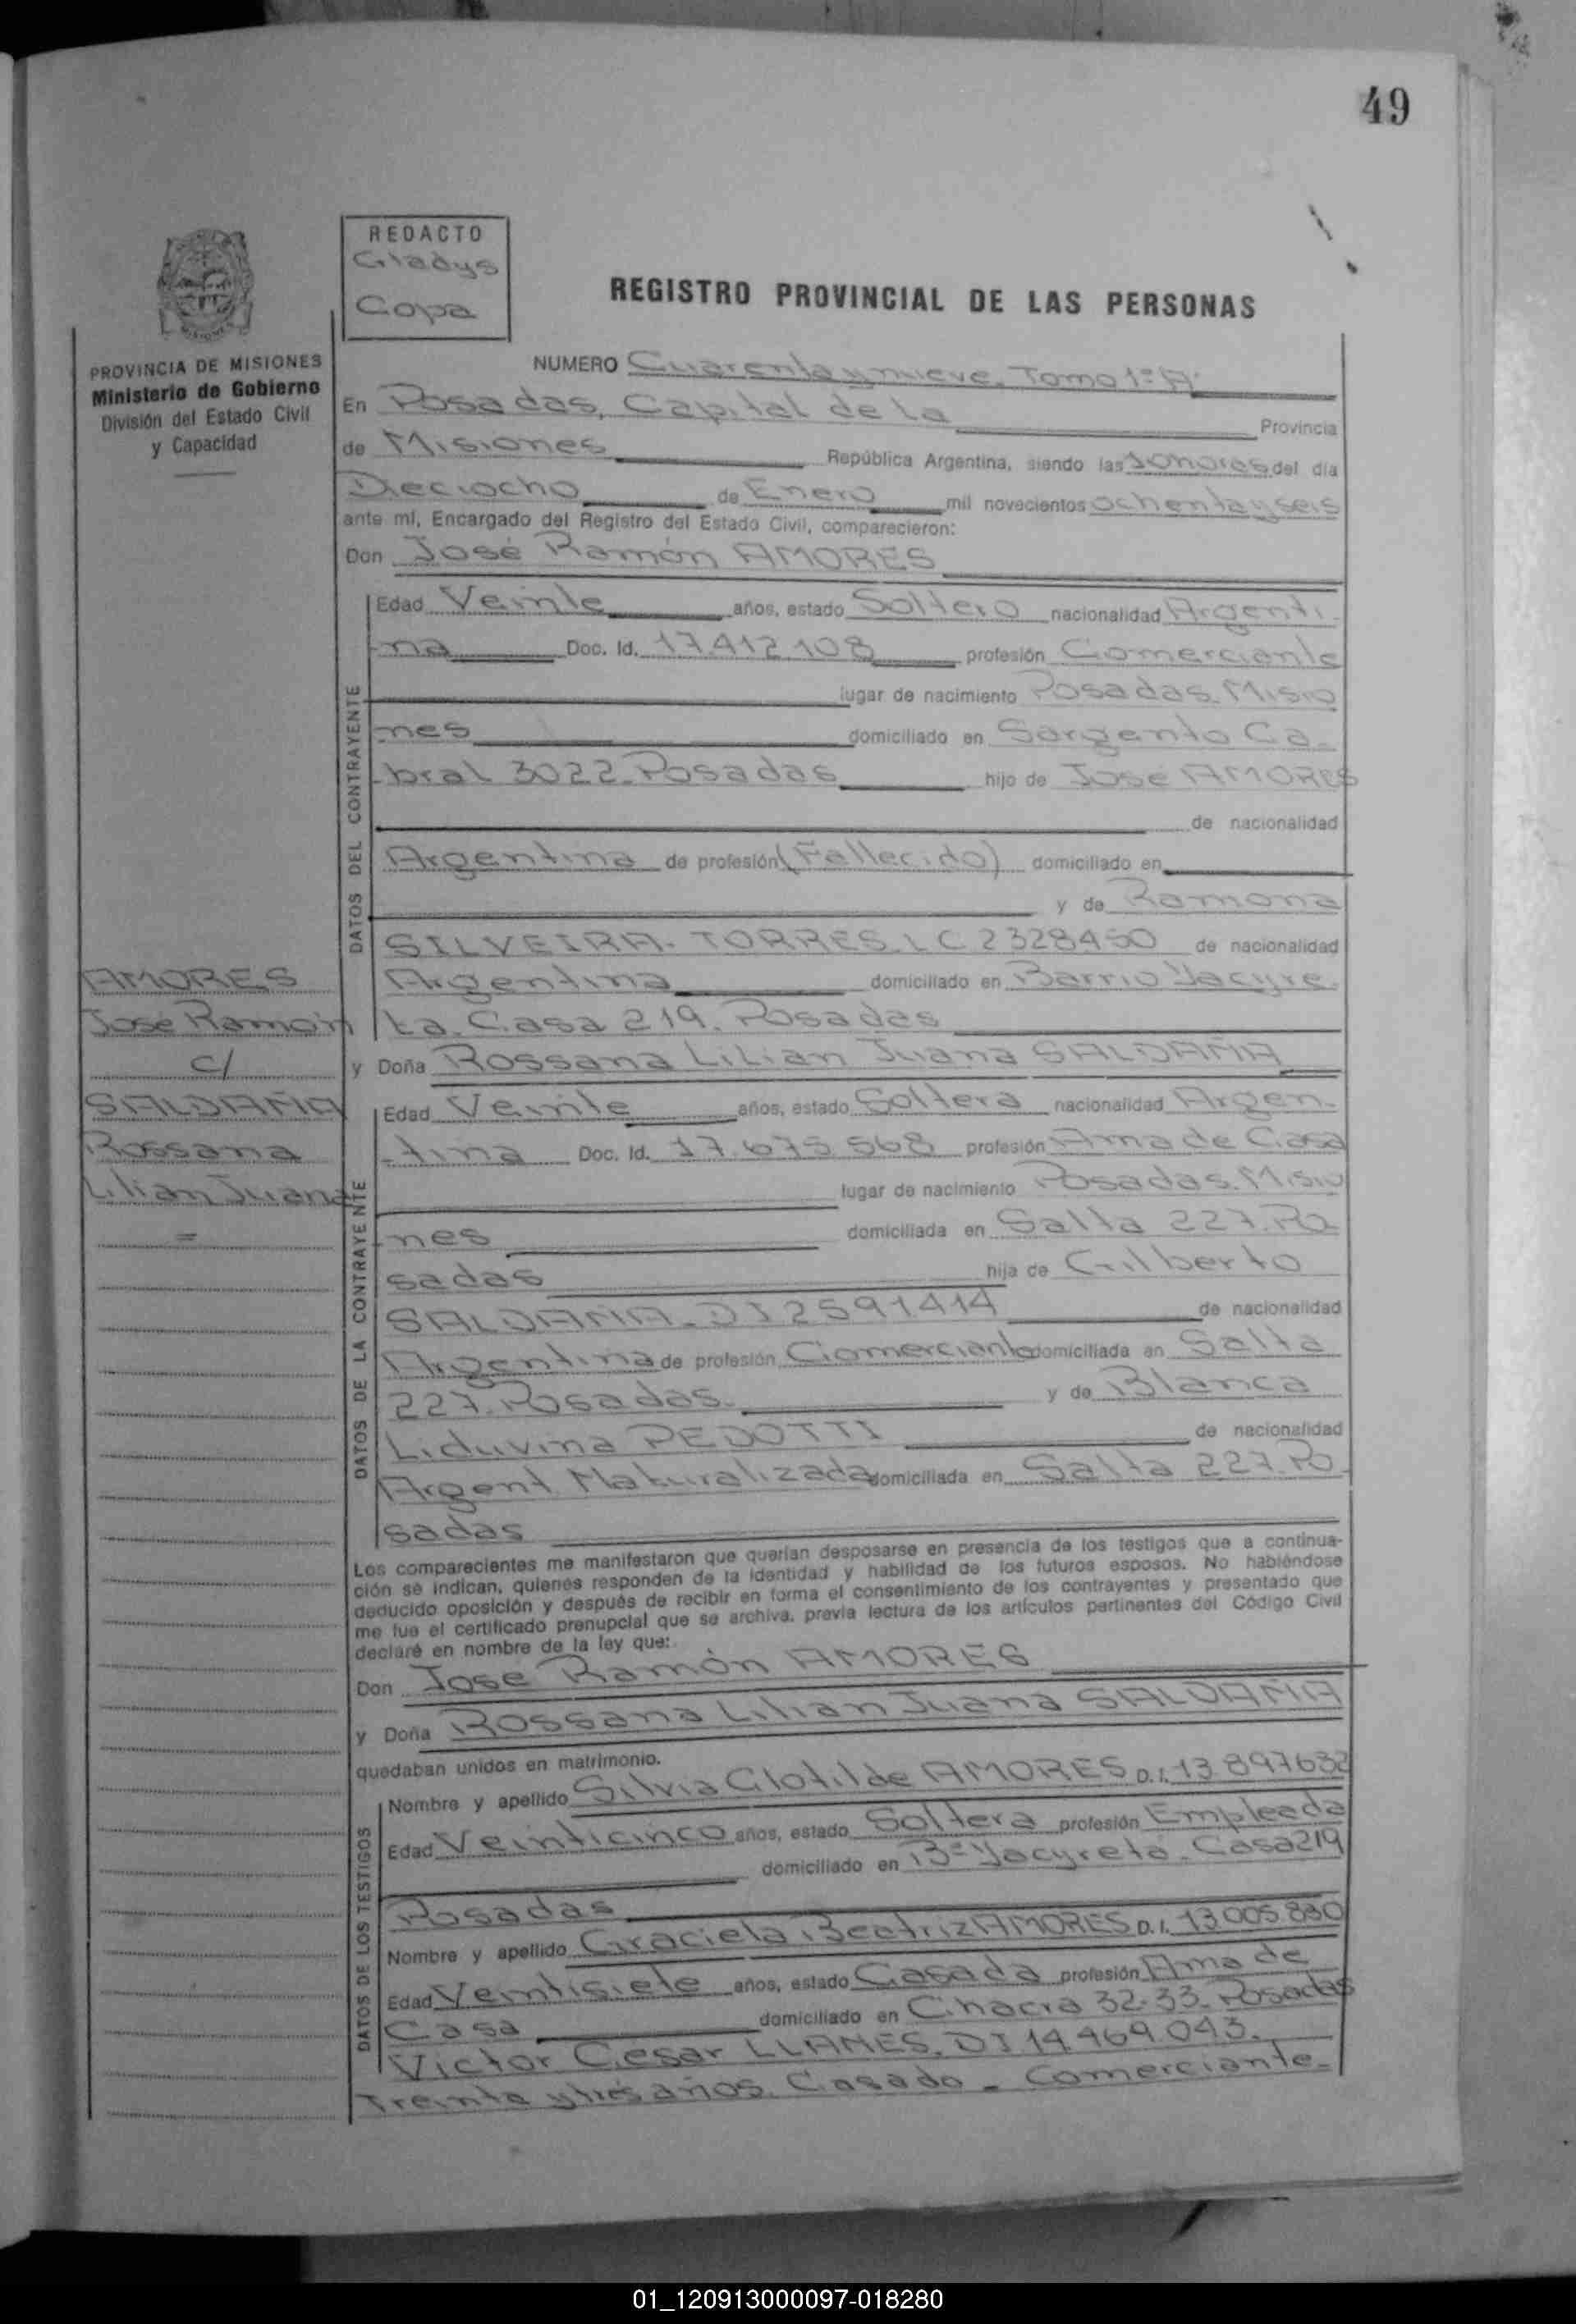 49
REDACTO
Gladys
Copa
REGISTRO PROVINCIAL DE LAS PERSONAS
PROVINCIA DE MISIONES
Ministerio de Gobierno
División del Estado Civil
y Capacidad
NUMERO Cuarenta y nueve. Tomo 1º A
En Posadas, Capital de la Provincia
de Misiones República Argentina, siendo las 10 horas del día
Dieciocho de Enero mil novecientos ochenta y seis
ante mí, Encargado del Registro del Estado Civil, comparecieron:
Don José Ramón AMORES
DATOS DEL CONTRAYENTE
Edad Veinte años, estado Soltero nacionalidad Argenti-
na Doc. Id. 17.412.108 profesión Comerciante
lugar de nacimiento Posadas. Misio
nes domiciliado en Sargento Ca-
bral 3022. Posadas hijo de José AMORES
de nacionalidad
Argentina de profesión (Fallecido) domiciliado en
y de Ramona
SILVEIRA. TORRES. LC 2328450 de nacionalidad
Argentina domiciliado en Barrio Yacyre-
ta. Casa 219. Posadas
AMORES
José Ramón
c/
SALDAÑA
Rossana
Lilian Juana
=
y Doña Rossana Lilian Juana SALDAÑA
DATOS DE LA CONTRAYENTE
Edad Veinte años, estado Soltera nacionalidad Argen-
tina Doc. Id. 17.675.568 profesión Ama de Casa
lugar de nacimiento Posadas. Misio
nes domiciliada en Salta 227. Po
sadas hija de Gilberto
SALDAÑA. DI 2591.414 de nacionalidad
Argentina de profesión Comerciante domiciliada en Salta
227. Posadas. y de Blanca
Liduvina PEDOTTI de nacionalidad
Argent. Naturalizada domiciliada en Salta 227. Po-
sadas
Los comparecientes me manifestaron que querían desposarse en presencia de los testigos que a continua-
ción se indican, quienes responden de la identidad y habilidad de los futuros esposos. No habiéndose
deducido oposición y después de recibir en forma el consentimiento de los contrayentes y presentado que
me fue el certificado prenupcial que se archiva, previa lectura de los artículos pertinentes del Código Civil
declaré en nombre de la ley que:
Don José Ramón AMORES
y Doña Rossana Lilian Juana SALDAÑA
quedaban unidos en matrimonio.
DATOS DE LOS TESTIGOS
Nombre y apellido Silvia Clotilde AMORES D.I. 13.897632
Edad Veinticinco años, estado Soltera profesión Empleada
domiciliado en Bº Yacyretá. Casa 219
Posadas
Nombre y apellido Graciela Beatriz AMORES D.I. 13.005.830
Edad Veintisiete años, estado Casada profesión Ama de
Casa domiciliado en Chacra 32-33. Posadas
Victor Cesar LLANES. DI 14.469.043.
Treinta y tres años. Casado - Comerciante-
01_120913000097-018280